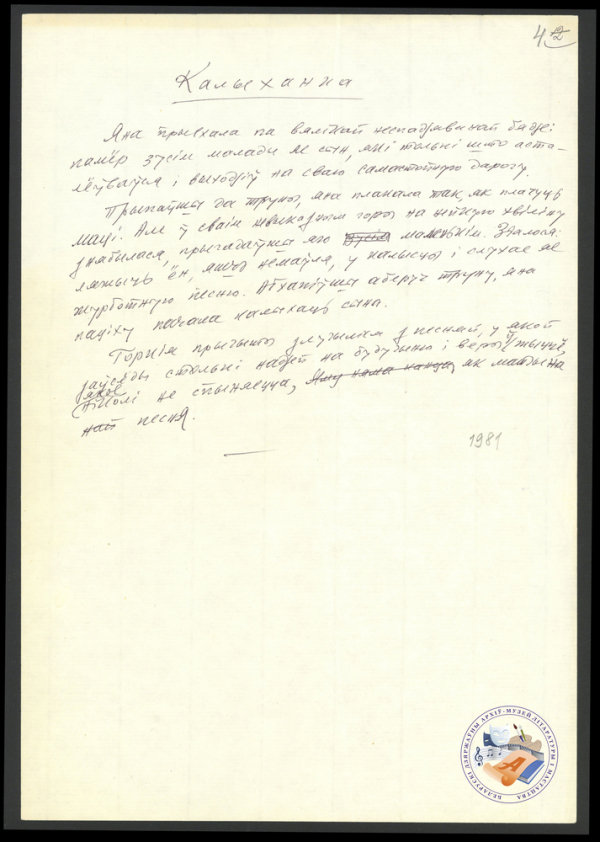 42
Калыханка
Яна прыехала па вялікай непапраўнай бядзе:
памёр зусім малады яе сын, які толькі што аста-
лёўваўся і выходзіў на сваю самастойную дарогу.
Прыпаўшы да труны, яна плакала так, як плачуць
маці. Але ў сваім невыказным горы на нейкую хвіліну
зжабылася, прыгадаўшы яго зусім маленькім. Здалося:
ляжыць ён, яшчэ немаўля, у калысцы і слухае яе
журботную песню. Абхапіўшы аберуч труну, яна
паціху пачала калыхаць сына.
Горкія прычыты зліваліся з песняй, у якой
заўсёды столькі надзей на будучыню і веры ў жыццё,
якое
ніколі не спыняецца, яму няма канца, як матчына
най песня.
1981
БЕЛАРУСКІ ДЗЯРЖАЎНЫ АРХІЎ-МУЗЕЙ ЛІТАРАТУРЫ І МАСТАЦТВА